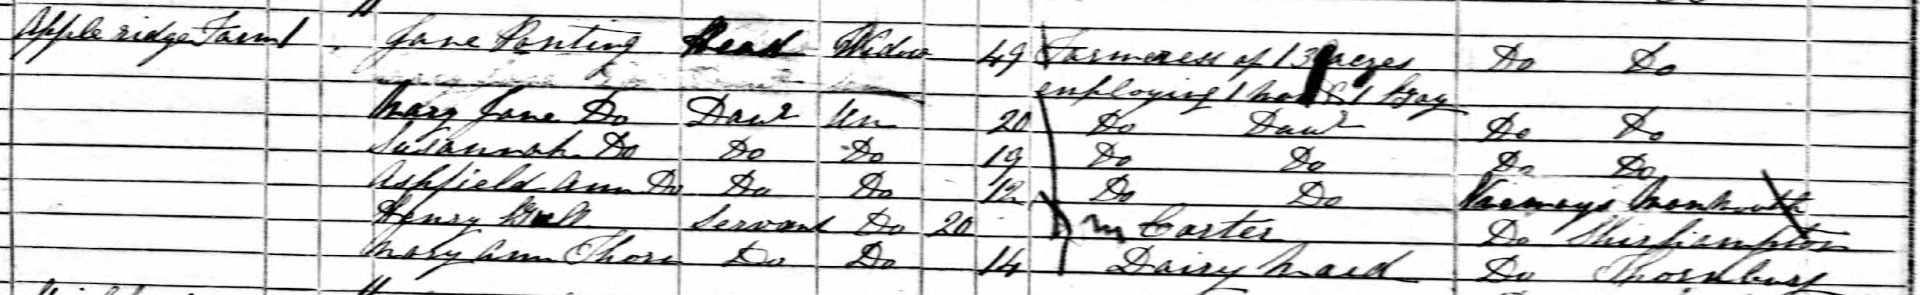 Appleridge Farm 1 Jane Ponting Head Widow 49 Farmeress of 13 acres Do Do
employing 1 & 1 Boy
Mary Jane Do Daur Un 20 Do Daur Do Do
Susannah Do Do Do 19 Do Do Do Do
Ashfield Ann Do Do Do 12 Do Do
Henry Servant Do 20 Carter Do Shirehampton
Mary Ann Thorn Do Do 14 Dairy Maid Do Thornbury